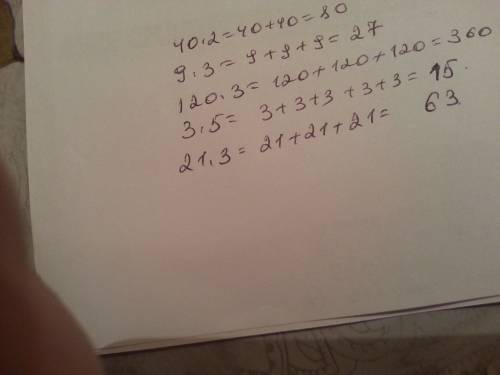 40·2=40+40=80
9·3= 9+9+9= 27
120·3= 120+120+120=360
3·5= 3+3+3+3+3= 15.
21·3= 21+21+21= 63